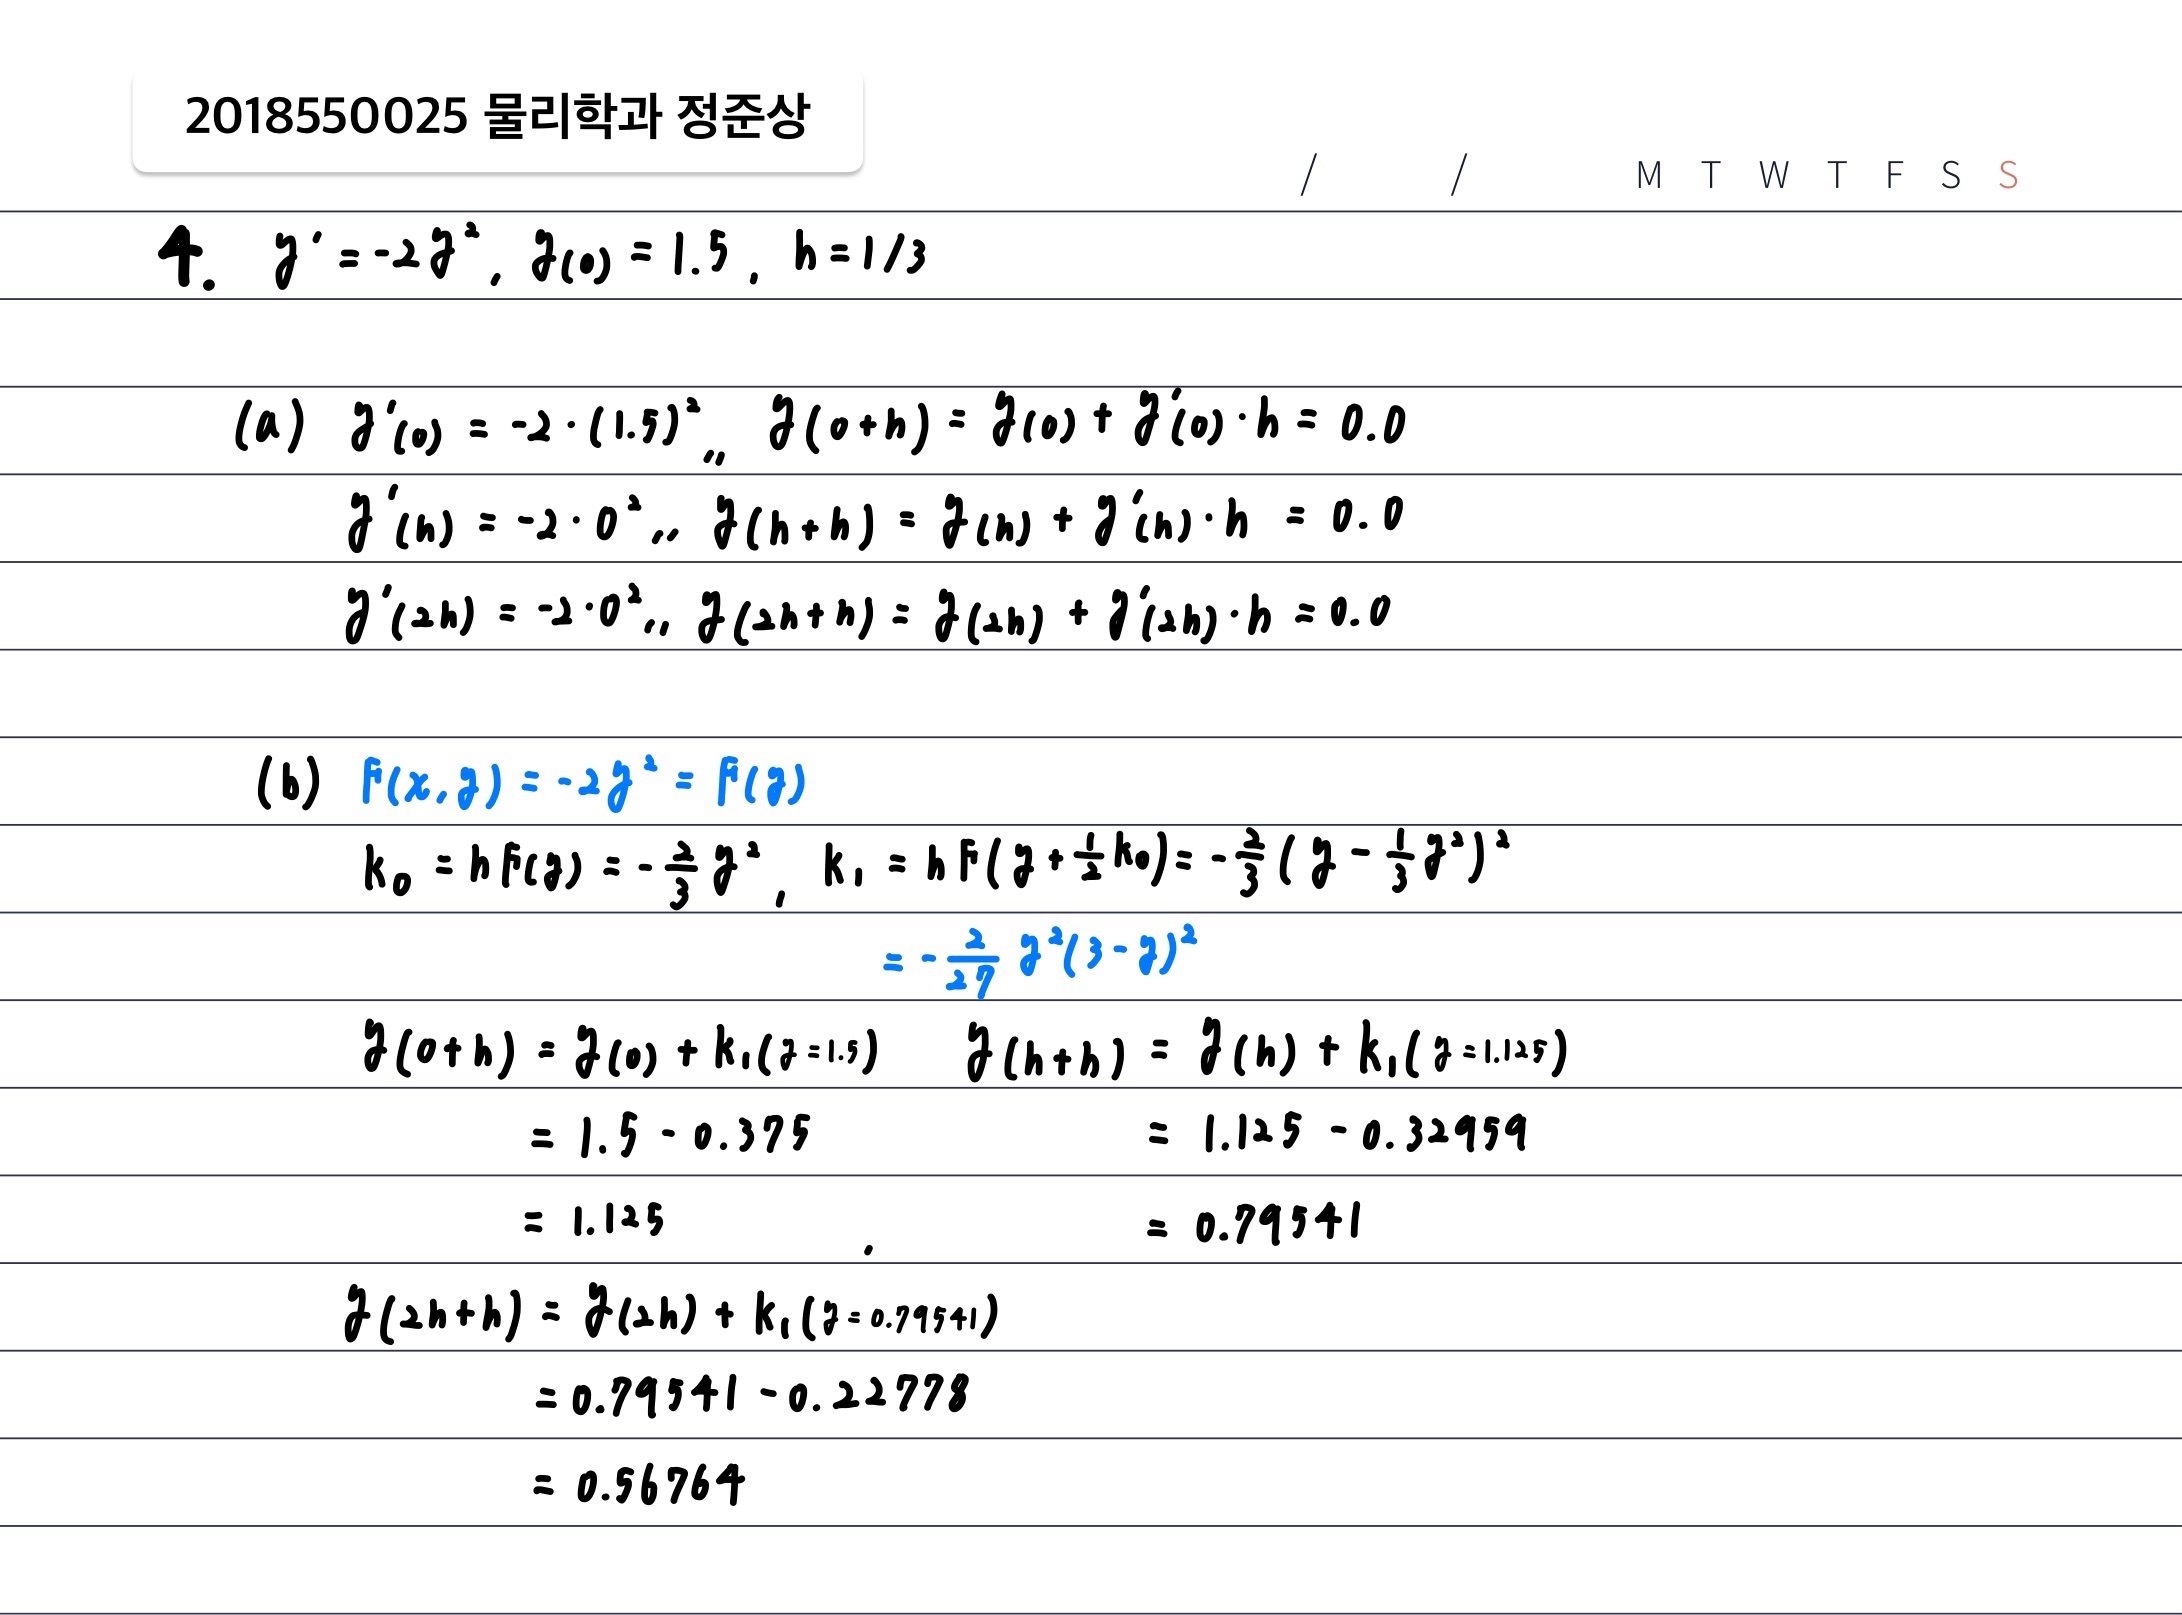 2018550025 물리학과 정준상
/ / M T W T F S S
4. y' = -2y², y(0) = 1.5, h = 1/3
(a) y'(0) = -2·(1.5)²,, y(0+h) = y(0) + y'(0)·h = 0.0
y'(h) = -2·0²,, y(h+h) = y(h) + y'(h)·h = 0.0
y'(2h) = -2·0²,, y(2h+h) = y(2h) + y'(2h)·h = 0.0
(b) F(x,y) = -2y² = F(y)
k₀ = hF(y) = -2/3 y², k₁ = hF(y + 1/2 k₀) = -2/3 (y - 1/3 y²)²
= -2/27 y²(3-y)²
y(0+h) = y(0) + k₁(y=1.5) y(h+h) = y(h) + k₁(y=1.125)
= 1.5 - 0.375 = 1.125 - 0.32959
= 1.125 , = 0.79541
y(2h+h) = y(2h) + k₁(y=0.79541)
= 0.79541 - 0.22778
= 0.56764